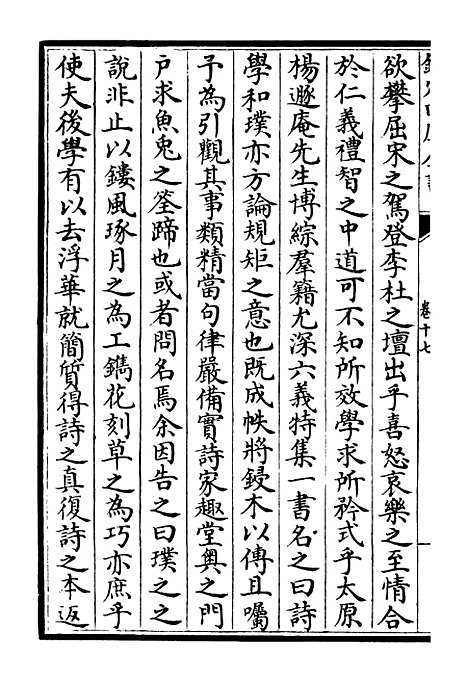 欽定四庫全書
卷十七
欲攀屈宋之駕登李杜之壇出乎喜怒哀樂之至情合
於仁義禮智之中道可不知所效學求所矜式乎太原
楊遯庵先生博綜羣籍尤深六義特集一書名之曰詩
學和璞亦方論規矩之意也既成帙將鋟木以傳且囑
予為引觀其事類精當句律嚴備實詩家趣堂奥之門
戸求魚兎之筌蹄也或者問名焉余因告之曰璞之之
說非止以鏤風琢月之為工鐫花刻草之為巧亦庶乎
使夫後學有以去浮華就簡質得詩之真復詩之本返